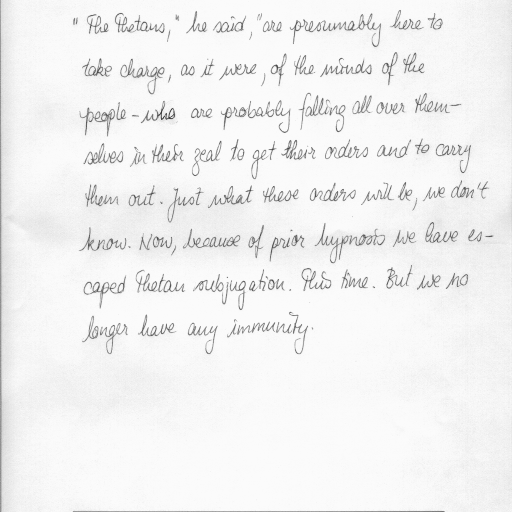 "The Thetans," he said, "are presumably here to
take charge, as it were, of the minds of the
people - who are probably falling all over them-
selves in their zeal to get their orders and to carry
them out. Just what these orders will be, we don't
know. Now, because of prior hypnosis we have es-
caped Thetan subjugation. This time. But we no
longer have any immunity.